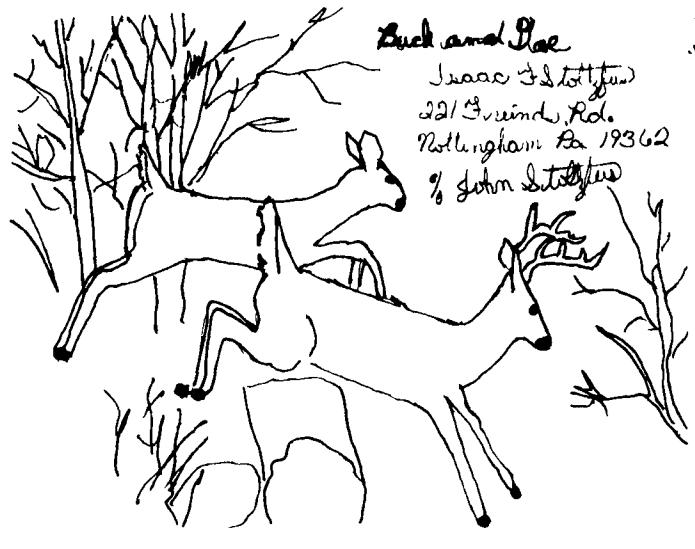 Buck and Doe
Isaac F Stoltzfus
221 Freind Rd.
Nottingham Pa 19362
% John Stoltzfus